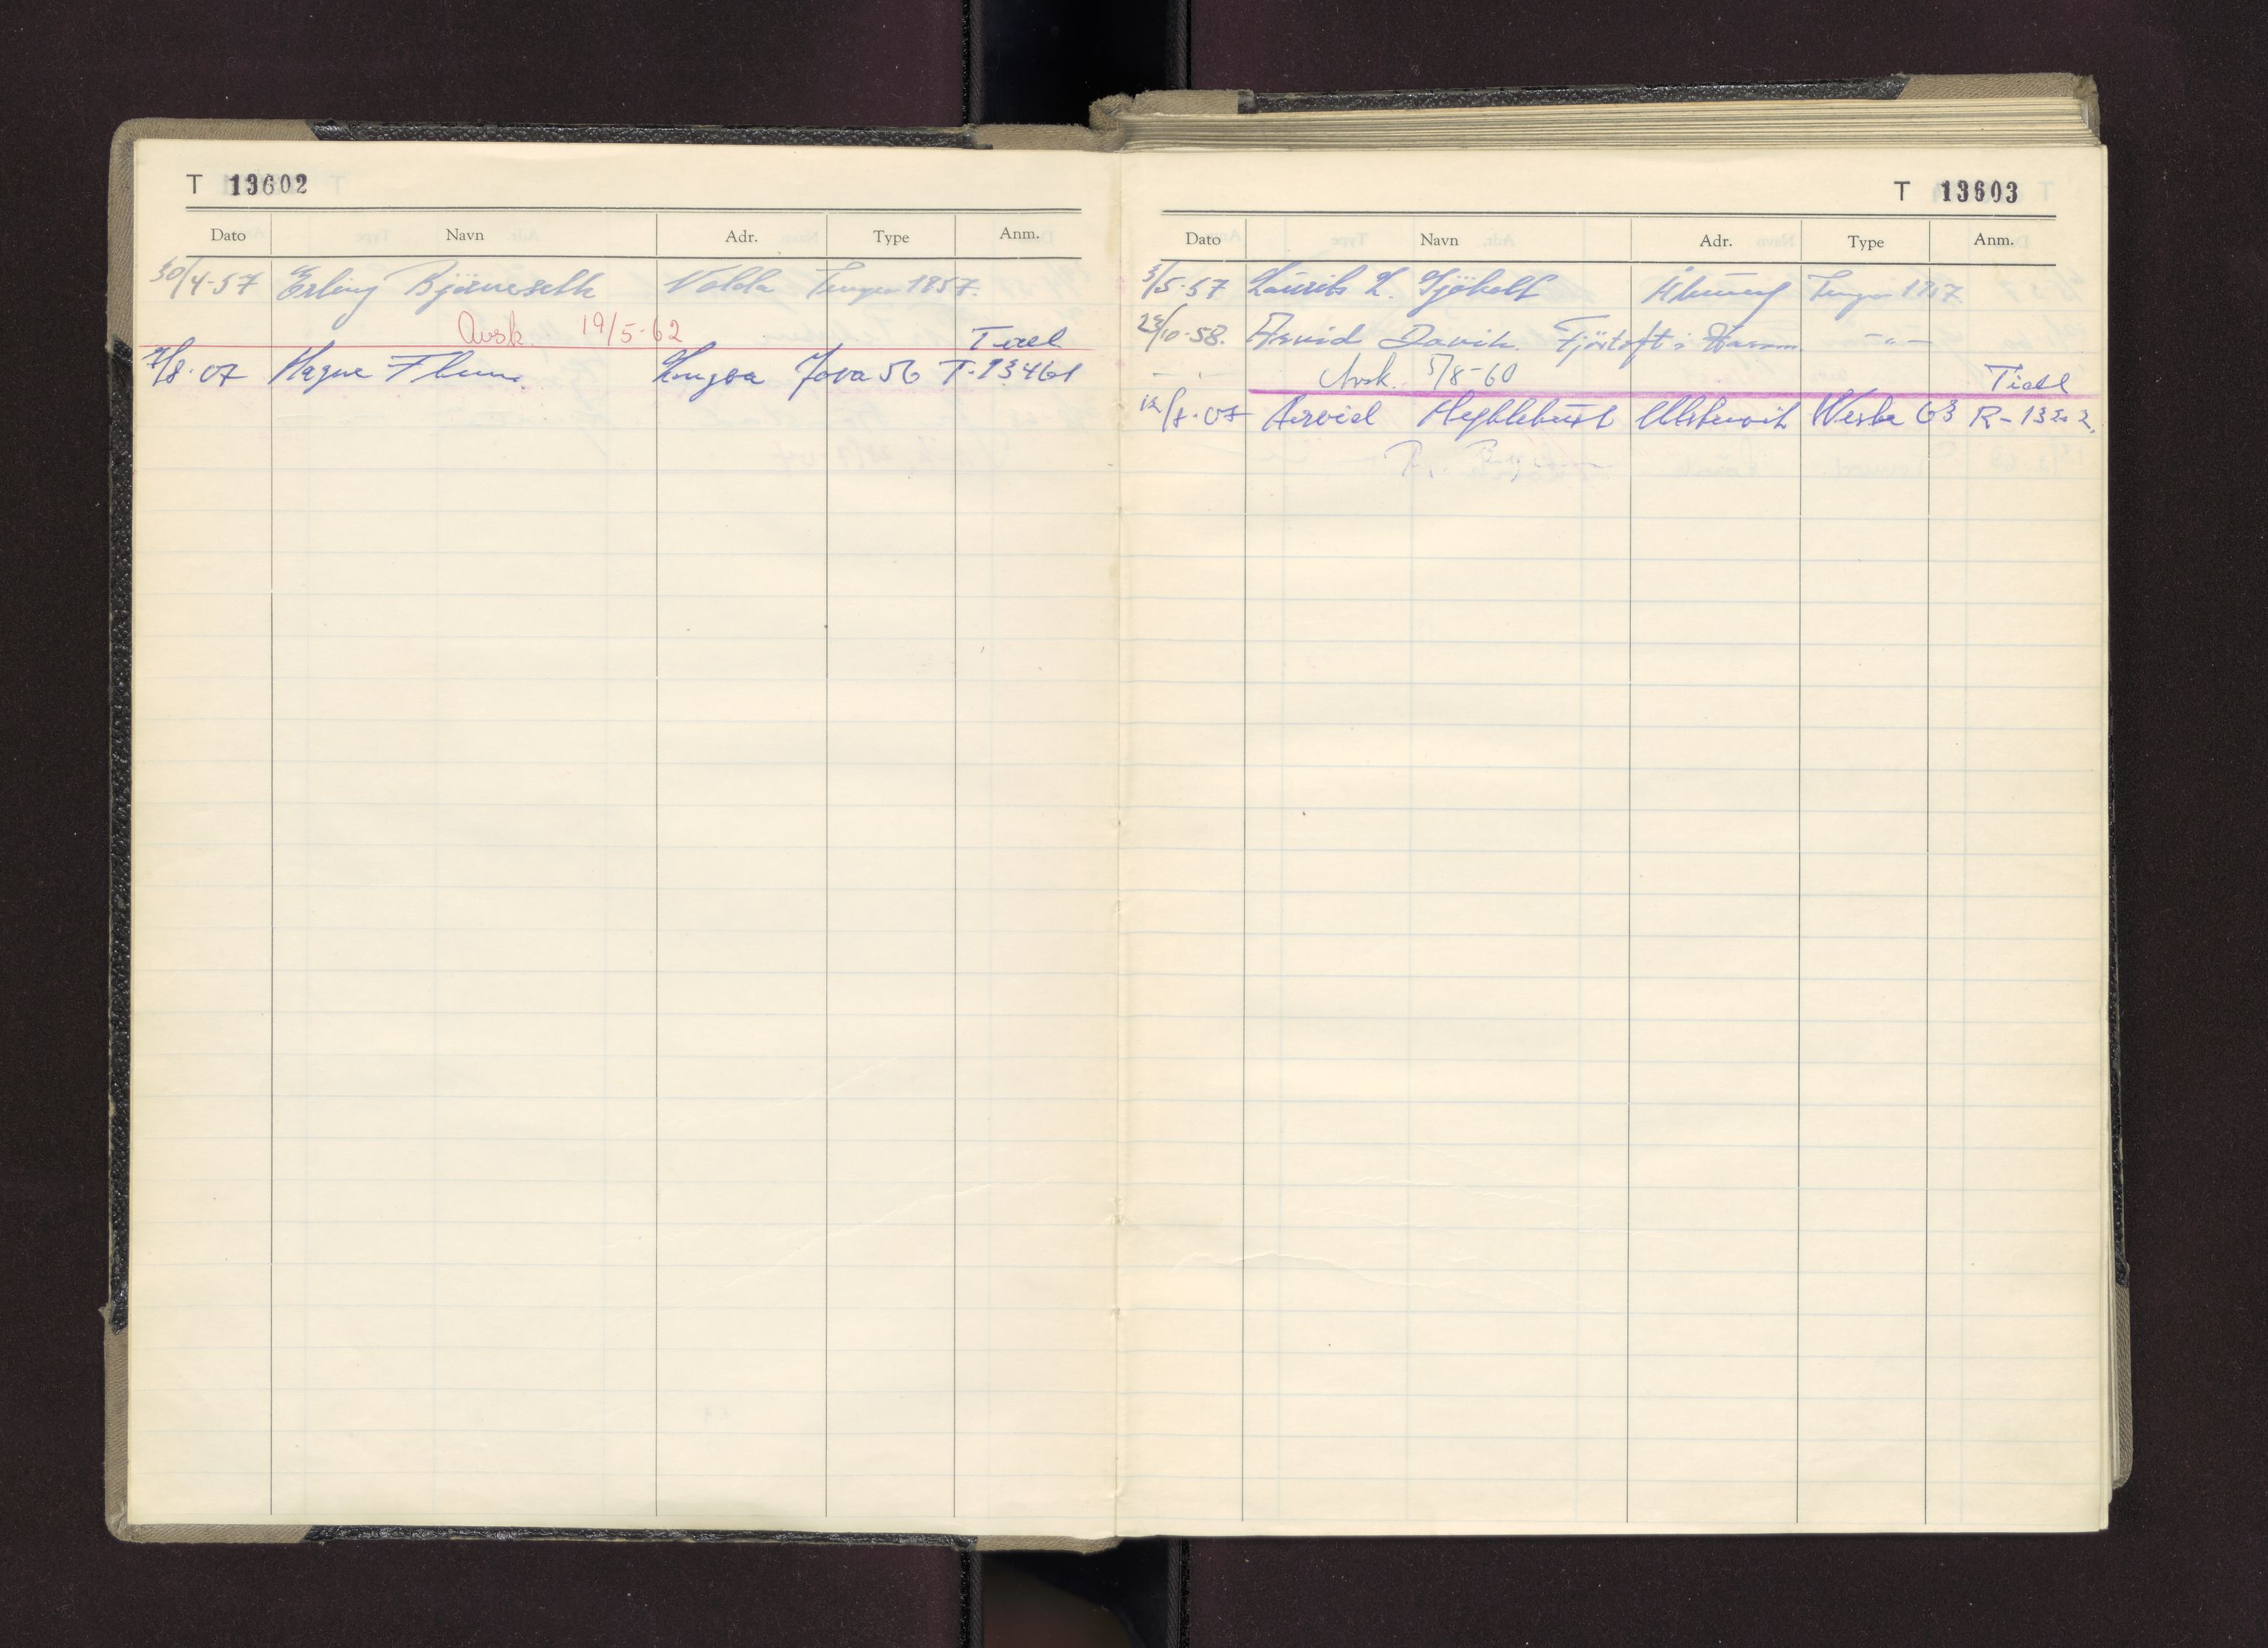 T 13602
Dato Navn Adr. Type Anm.
30/4-57 Erling Björneseth Volda Tempo 1957.
Avsk. 19/5-62
8-07 Magne Flem Longva Jawa 56 T-13461
T 13603
Dato Navn Adr. Type Anm.
3/5-57 Laurits L. Gjøholt Tempo
23/10-58. Arvid Davik. Fjörtoft i Haram -"-
Avsk. 5/8-60
12/8-07 Arvid Myklebust Ulsteinvik 63 R-